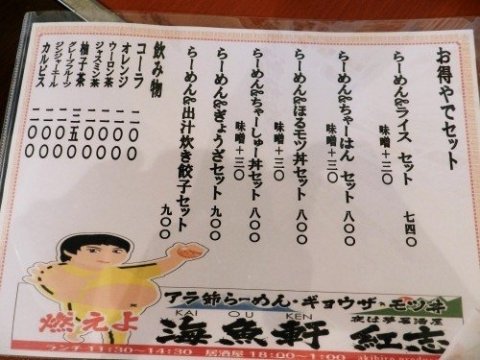 お得やでセット
らーめん&ライス セット 七四〇
味噌+三〇
らーめん&ちゃーはん セット 八〇〇
味噌+三〇
らーめん&ほるモツ丼セット 八〇〇
味噌+三〇
らーめん&ちゃーしゅー丼セット 八〇〇
味噌+三〇
らーめん&ぎょうざセット 九〇〇
らーめん&出汁炊き餃子セット 九〇〇
飲み物
コーラ 二〇〇
オレンジ 二〇〇
ウーロン茶 二〇〇
ジャスミン茶 二〇〇
柚子茶 三五〇
グレープフルーツ 二〇〇
ジンジャーエール 二〇〇
カルピス 二〇〇
アラ節らーめん・ギョウザ・モツ丼
KAI OU KEN
燃えよ 海魚軒 紅志
ランチ 11:30~14:30 居酒屋 18:00~1:00